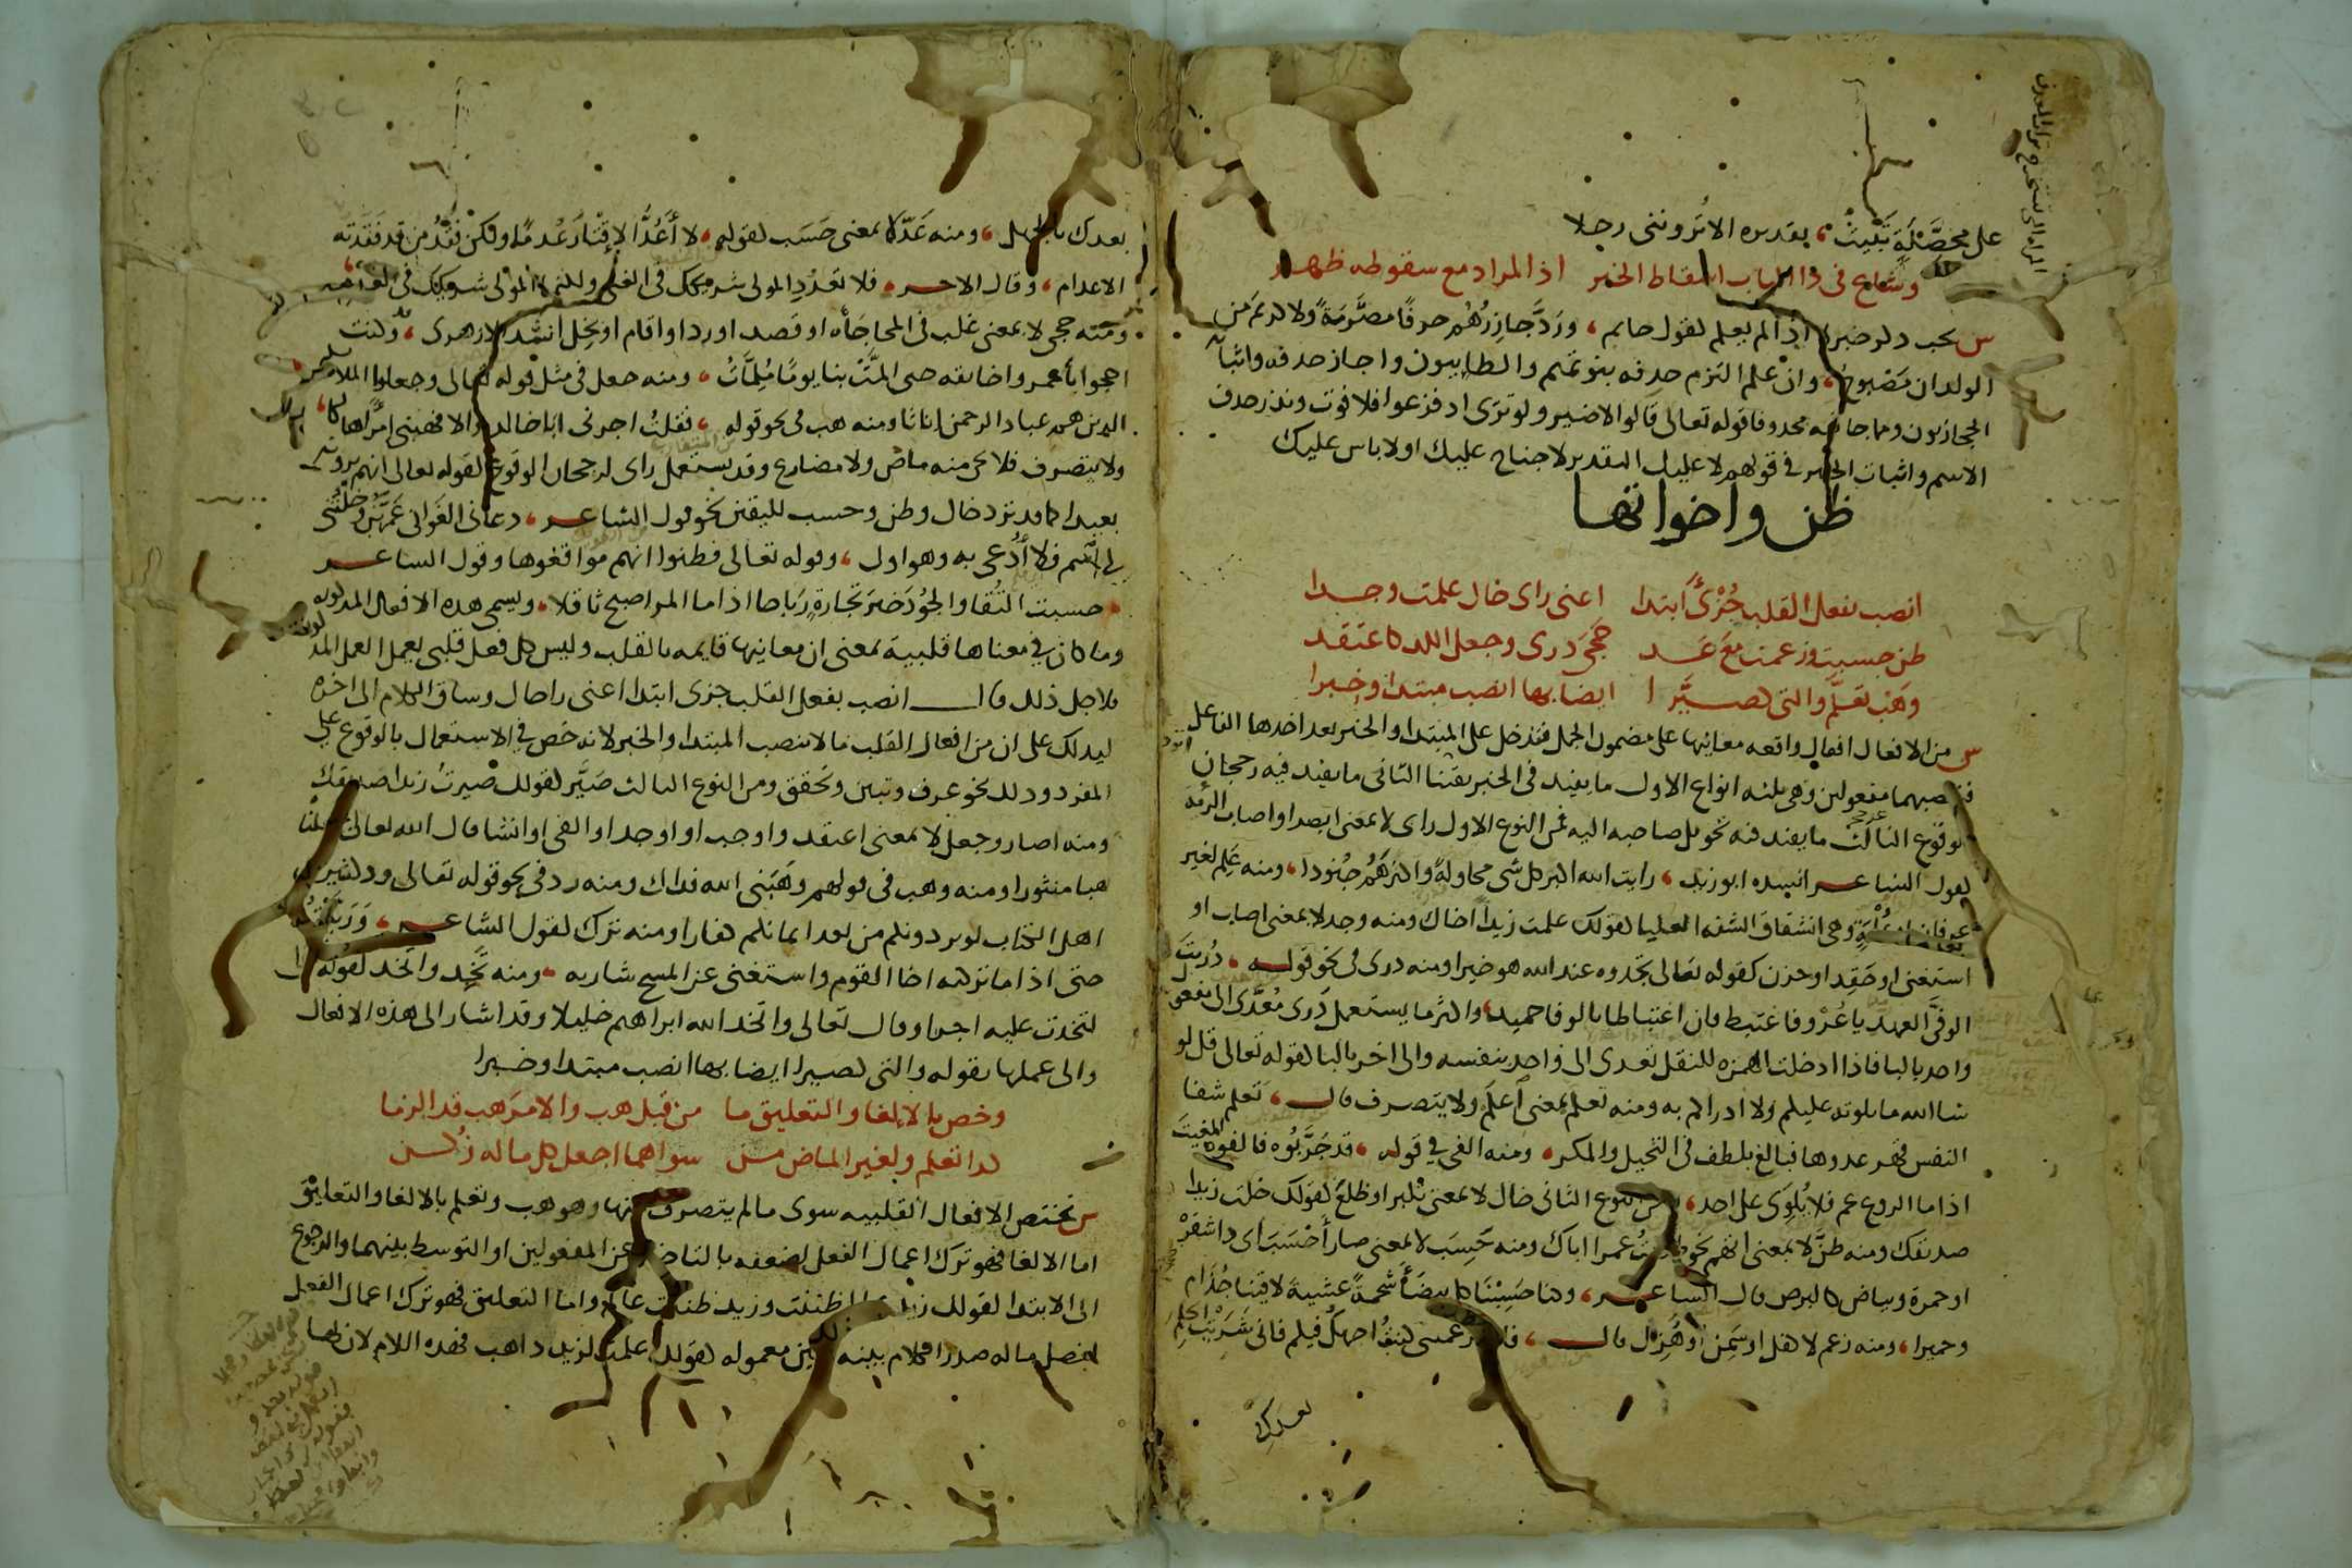 على محصلة تبيت، بتقديره الا تروننى رجلا
وشاع فى ذا الباب اسقاط الخبر اذ المراد مع سقوطه ظهر
س يجب ذكر خبر لا اذا لم يعلم كقول حاتم، ورد جازرهم حرفا مصرمة ولا كريم من
الولدان مصبوح، وان علم التزم حذفه بنو تميم والطاييون واجاز حذفه واثباته
الحجازيون ومما جا فيه محذوفا قوله تعالى قالوا لا ضير ولو ترى اذ فزعوا فلا فوت وندر حذف
الاسم واثبات الخبر فى قولهم لا عليك التقدير لا جناح عليك او لا باس عليك
ظن واخواتها
انصب بفعل القلب جزئى ابتدا اعنى راى خال علمت وجدا
ظن حسبت وزعمت مع عد حجى درى وجعل اللذ كاعتقد
وهب تعلم والتى كصيرا ايضا بها انصب مبتدا وخبرا
س من الافعال افعال واقعه معانيها على مضمون الجمل فتدخل على المبتدا والخبر بعد اخذها الفاعل
فتنصبهما مفعولين وهى ثلثه انواع الاول ما يفيد فى الخبر يقينا الثانى ما يفيد فيه رجحان
الوقوع الثالث ما يفيد فيه تحويل صاحبه اليه فمن النوع الاول راى لا بمعنى ابصر او اصاب الرئة
كقول الشاعر انشده ابو زيد، رايت الله اكبر كل شى محاولة واكثرهم جنودا، ومنه علم لغير
عرفان او علمة وهى انشقاق الشفه العليا كقولك علمت زيدا اخاك ومنه وجد لا بمعنى اصاب او
استغنى او حقد او حزن كقوله تعالى تجدوه عند الله هو خيرا ومنه درى فى نحو قوله، دريت
الوفى العهد يا عرو فاغتبط فان اغتباطا بالوفا حميد، واكثر ما يستعمل درى معدى الى مفعول
واحد بالبا فاذا ادخلت الهمزه للنقل تعدى الى واحد بنفسه والى اخر بالبا كقوله تعالى قل لو
شا الله ما تلوته عليكم ولا ادراكم به ومنه تعلم بمعنى اعلم ولا يتصرف قال، تعلم شفا
النفس قهر عدوها فبالغ بلطف فى التحيل والمكر، ومنه الفى فى قوله، قد جربوه فالفوه المغيث
اذا ما الروع عم فلا يلوى على احد، ومن النوع الثانى خال لا بمعنى تكبر او ظلع كقولك خلت زيدا
صديقك ومنه ظن لا بمعنى اتهم نحو ظننت عمرا اباك ومنه حسب لا بمعنى صار احسب اى ذا شقرة
او حمرة وبياض كالبرص قال الشاعر، وكنا حسبنا كل بيضا شحمة عشية لاقينا جذام
وحميرا، ومنه زعم لا كفل او سمن او هزل قال، فان تزعمينى كنت اجهل فيكم فانى شريت الحلم
بعدك
بعدك بالجهل، ومنه عد لا بمعنى حسب كقوله، لا اعد الاقتار عدما ولكن فقد من قد فقدته
الاعدام، وقال الاخر، فلا تعدد المولى شريكك فى الغنى ولكنما المولى شريكك فى العدم
ومنه حجى لا بمعنى غلب فى المحاجاة او قصد او رد او اقام او بخل انشد الازهرى، وكنت
احجوا ابا عمرو اخا ثقه حتى المت بنا يوما ملمات، ومنه جعل فى مثل قوله تعالى وجعلوا الملايكه
الذين هم عباد الرحمن اناثا ومنه هب فى نحو قوله، فقلت اجرنى ابا خالد والا فهبنى امرا هالكا،
ولا يتصرف فلا يجى منه ماض ولا مضارع وقد يستعمل راى لرجحان الوقوع كقوله تعالى انهم يرونه
بعيدا كما قد ترد خال وظن وحسب لليقين نحو قول الشاعر، دعانى الغوانى عمهن وخلتنى
لى اسم فلا ادعى به وهو اول، وقوله تعالى فظنوا انهم مواقعوها وقول الشاعر
، حسبت التقا والجود خير تجارة رباحا اذا ما المر اصبح ثاقلا، ويسمى هذه الافعال المذكوره
وما كان فى معناها قلبية بمعنى ان معانيها قايمه بالقلب وليس كل فعل قلبى يعمل العمل المذكور
فلاجل ذلك قال انصب بفعل القلب جزى ابتدا اعنى راى خال وساق الكلام الى اخره
ليدلك على ان من افعال القلب ما لا ينصب المبتدا والخبر لانه خص فى الاستعمال بالوقوع على
المفرد وذلك نحو عرف وتبين وتحقق ومن النوع الثالث صير كقولك صيرت زيدا صديقك
ومنه اصار وجعل لا بمعنى اعتقد او اوجب او اوجد او القى او انشا قال الله تعالى فجعلناه
هبا منثورا ومنه وهب فى قولهم وهبنى الله فداك ومنه رد فى نحو قوله تعالى ود كثير من
اهل الكتاب لو يردونكم من بعد ايمانكم كفارا ومنه ترك كقول الشاعر، وربيته
حتى اذا ما تركته اخا القوم واستغنى عن المسح شاربه، ومنه تخذ واتخذ كقوله تعالى
لتخذت عليه اجرا وقال تعالى واتخذ الله ابراهيم خليلا وقد اشار الى هذه الافعال
والى عملها بقوله والتى كصيرا ايضا بها انصب مبتدا وخبرا
وخص بالالغا والتعليق ما من قبل هب والامر هب قد الزما
كذا تعلم ولغير الماض من سواهما اجعل كل ما له زكن
س تختص الافعال القلبيه سوى ما لم يتصرف منها وهو هب وتعلم بالالغا والتعليق
اما الالغا فهو ترك اعمال الفعل لضعفه بالتاخر عن المفعولين او التوسط بينهما والرجوع
الى الابتدا كقولك زيد عالم ظننت وزيد ظننت عالم واما التعليق فهو ترك اعمال الفعل
لفصل ما له صدر الكلام بينه وبين معموله كقولك علمت لزيد ذاهب فهذه اللام لان لها